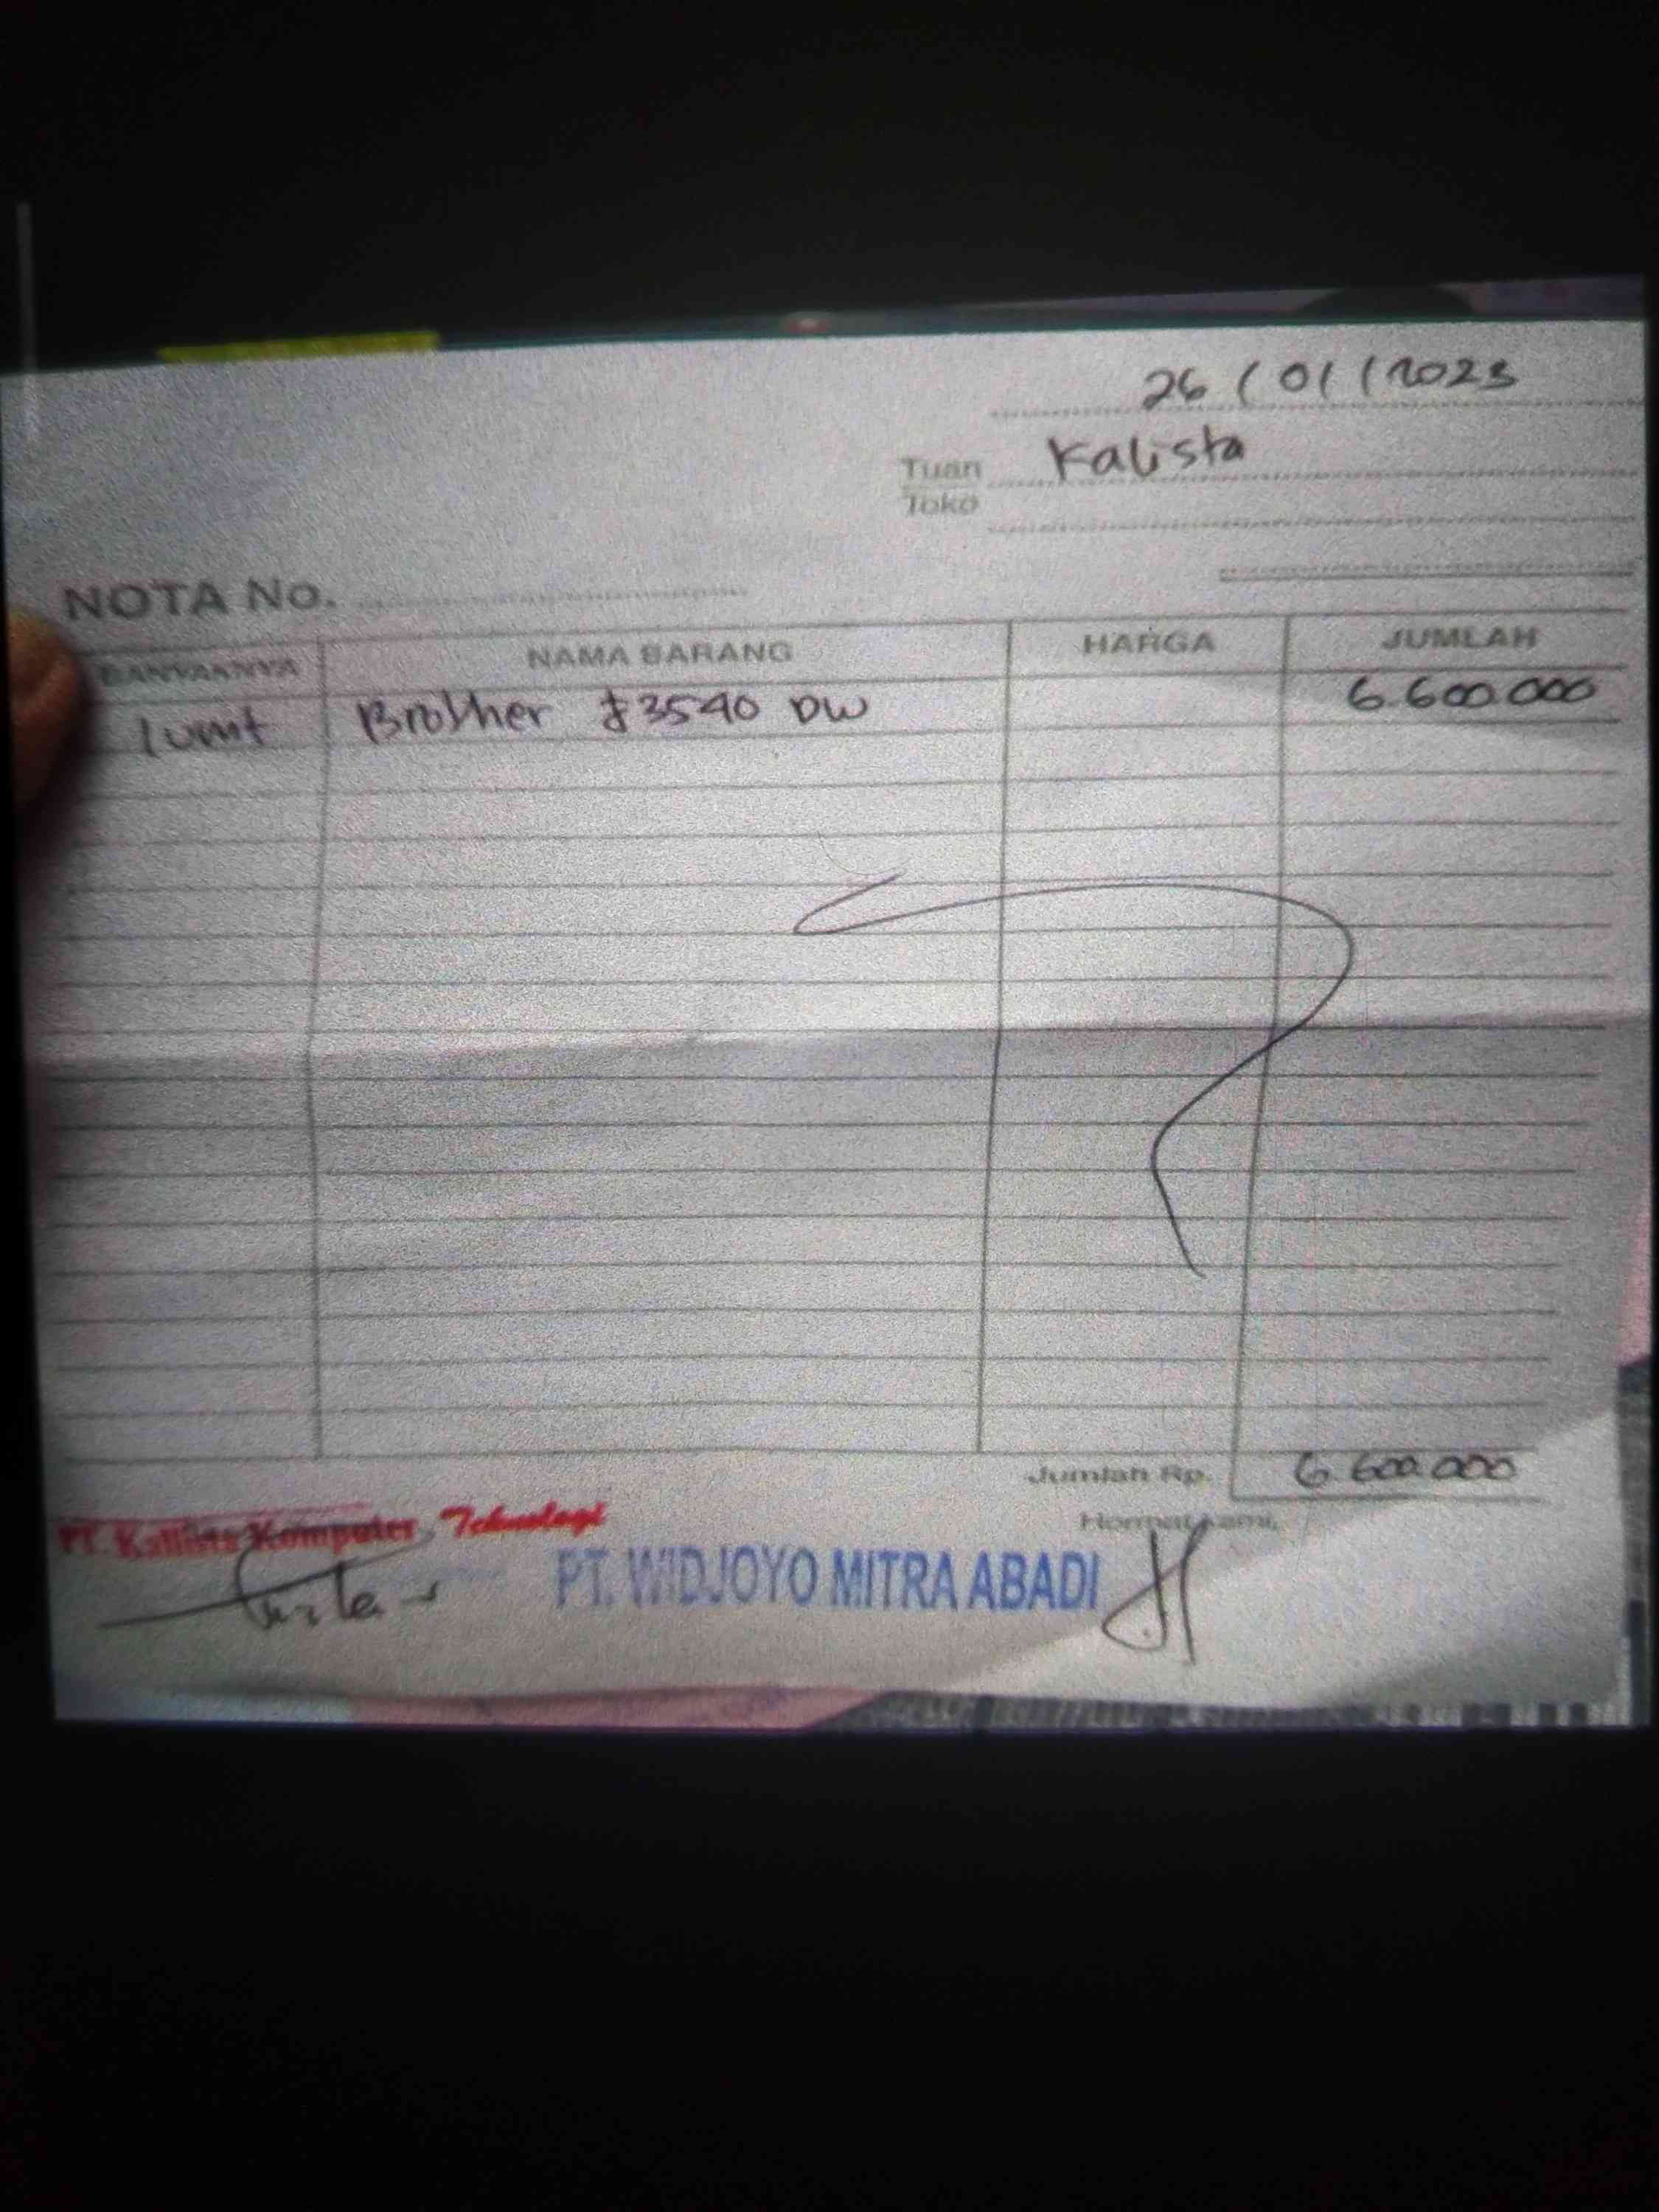 26/01/2023
Tuan Kalista
Toko
NOTA No.
BANYAKNYA NAMA BARANG HARGA JUMLAH
1 unit Brother J3540 DW 6.600.000
Jumlah Rp. 6.600.000
PT. Kallista Komputer Teknologi
Hormat kami,
PT. WIDJOYO MITRA ABADI